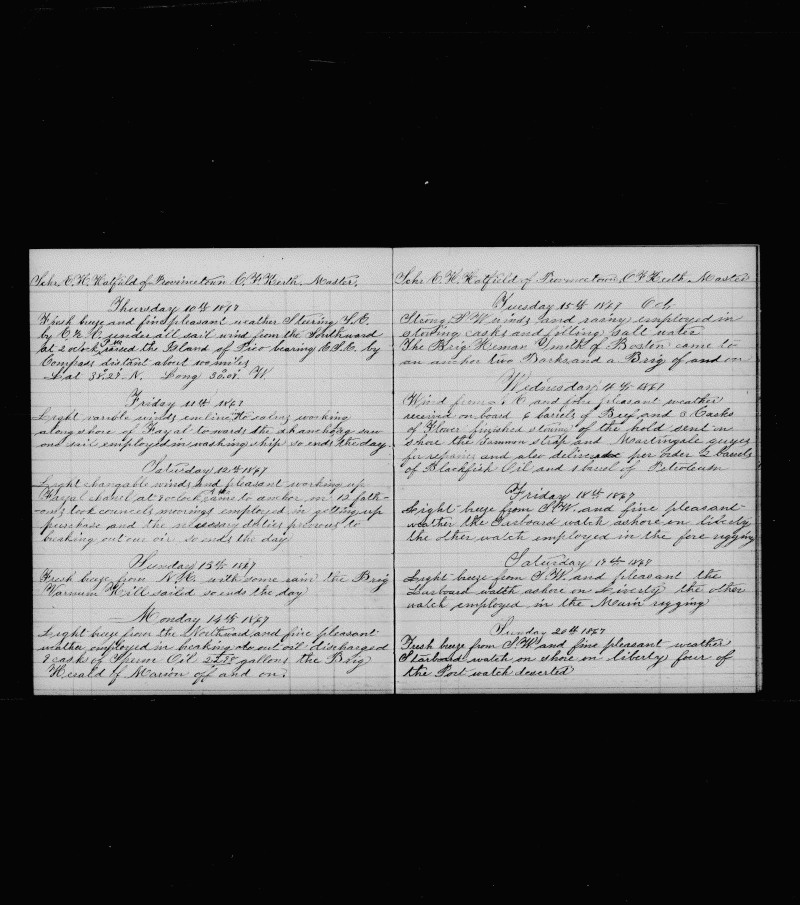 Schr. E. H. Hatfield of Provincetown C. F. Keith. Master.
Thursday 10th 1867
Fresh breeze and fine pleasant weather Steering S. E.
by E ½ E under all sail wind from the Southward
at 2 oclock P.M. raised the Island of Pico bearing E. S. E. by
Compass distant about 100 miles
Lat 38°. 21' N. Long 30°. 08'. W.
Friday 11th 1867
Light varible winds working
along shore of Fayal to wards the anchorage saw
one sail employed in washing ship so ends the day.
Saturday 12th 1867
Light changable winds and pleasant working up
Fayal chanel at 9 oclock came to anchor in 12 fath-
-oms took councels moorings employed in getting up
purchase and the necessary duties previous to
breaking out our oil so ends the day
Sunday 13th 1867
Fresh breeze from N. E. with some rain the Brig
Varnum Hill sailed so ends the day
Monday 14th 1867
Light breeze from the Northward and fine pleasant
weather employed in breaking out oil discharged
9 casks of Sperm Oil gallons the Brig
Herald of Marion off and on.
Schr E. H. Hatfield of Provincetown C F Keith Master
Tuesday 15th 1867 Oct
Strong S W winds and rainy employed in
stowing casks and filling salt water
The Brig Heman Smith of Boston came to
an anchor two Barks and a Brig off and on
Wednesday 1867
Wind from and fine pleasant weather
received on board 6 barrels of Beef and 3 Casks
of Flower finished of the hold sent on
shore the Gammon strap and Martingale guyes
for repaires and also delivered per order 2 barrels
of Blackfish Oil and 1 barel of Petroleum
Friday 18th 1867
Light breeze from S. W. and fine pleasant
weather the Larboard watch ashore on liberty
the other watch employed in the fore rigging
Saturday 19th 1867
Light breeze from S. W. and pleasant the
Larboard watch ashore on Liverty the other
watch employed in the Main rigging
Sunday 20th 1867
Fresh breeze from S. W and fine pleasant weather
Starboard watch on shore on liberty four of
the Port watch deserted